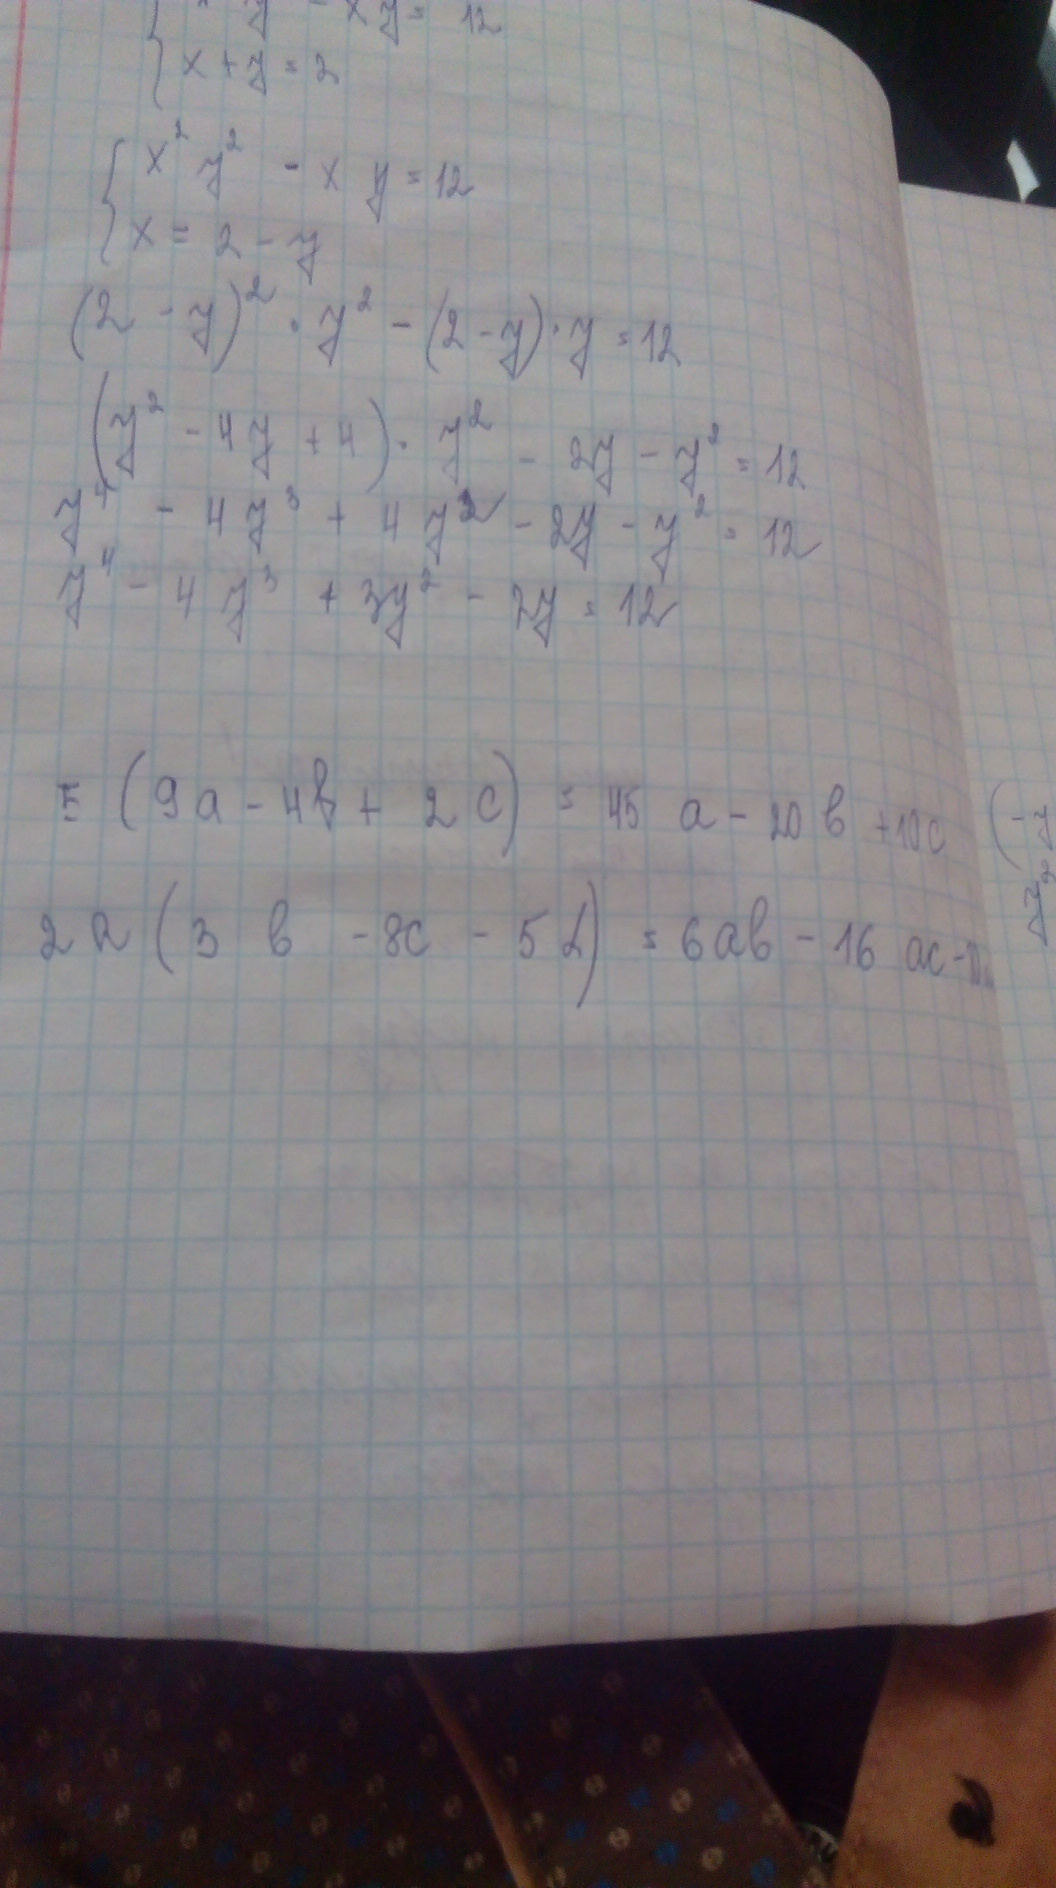 xy = 12
x + y = 2
x² y² - x y = 12
x = 2 - y
(2 - y)² · y² - (2 - y) · y = 12
(y² - 4y + 4) · y² - 2y - y² = 12
y⁴ - 4y³ + 4y² - 2y - y² = 12
y⁴ - 4y³ + 3y² - 2y = 12
5 (9a - 4b + 2c) = 45 a - 20 b + 10c
2a (3 b - 8c - 5d) = 6ab - 16 ac - 10